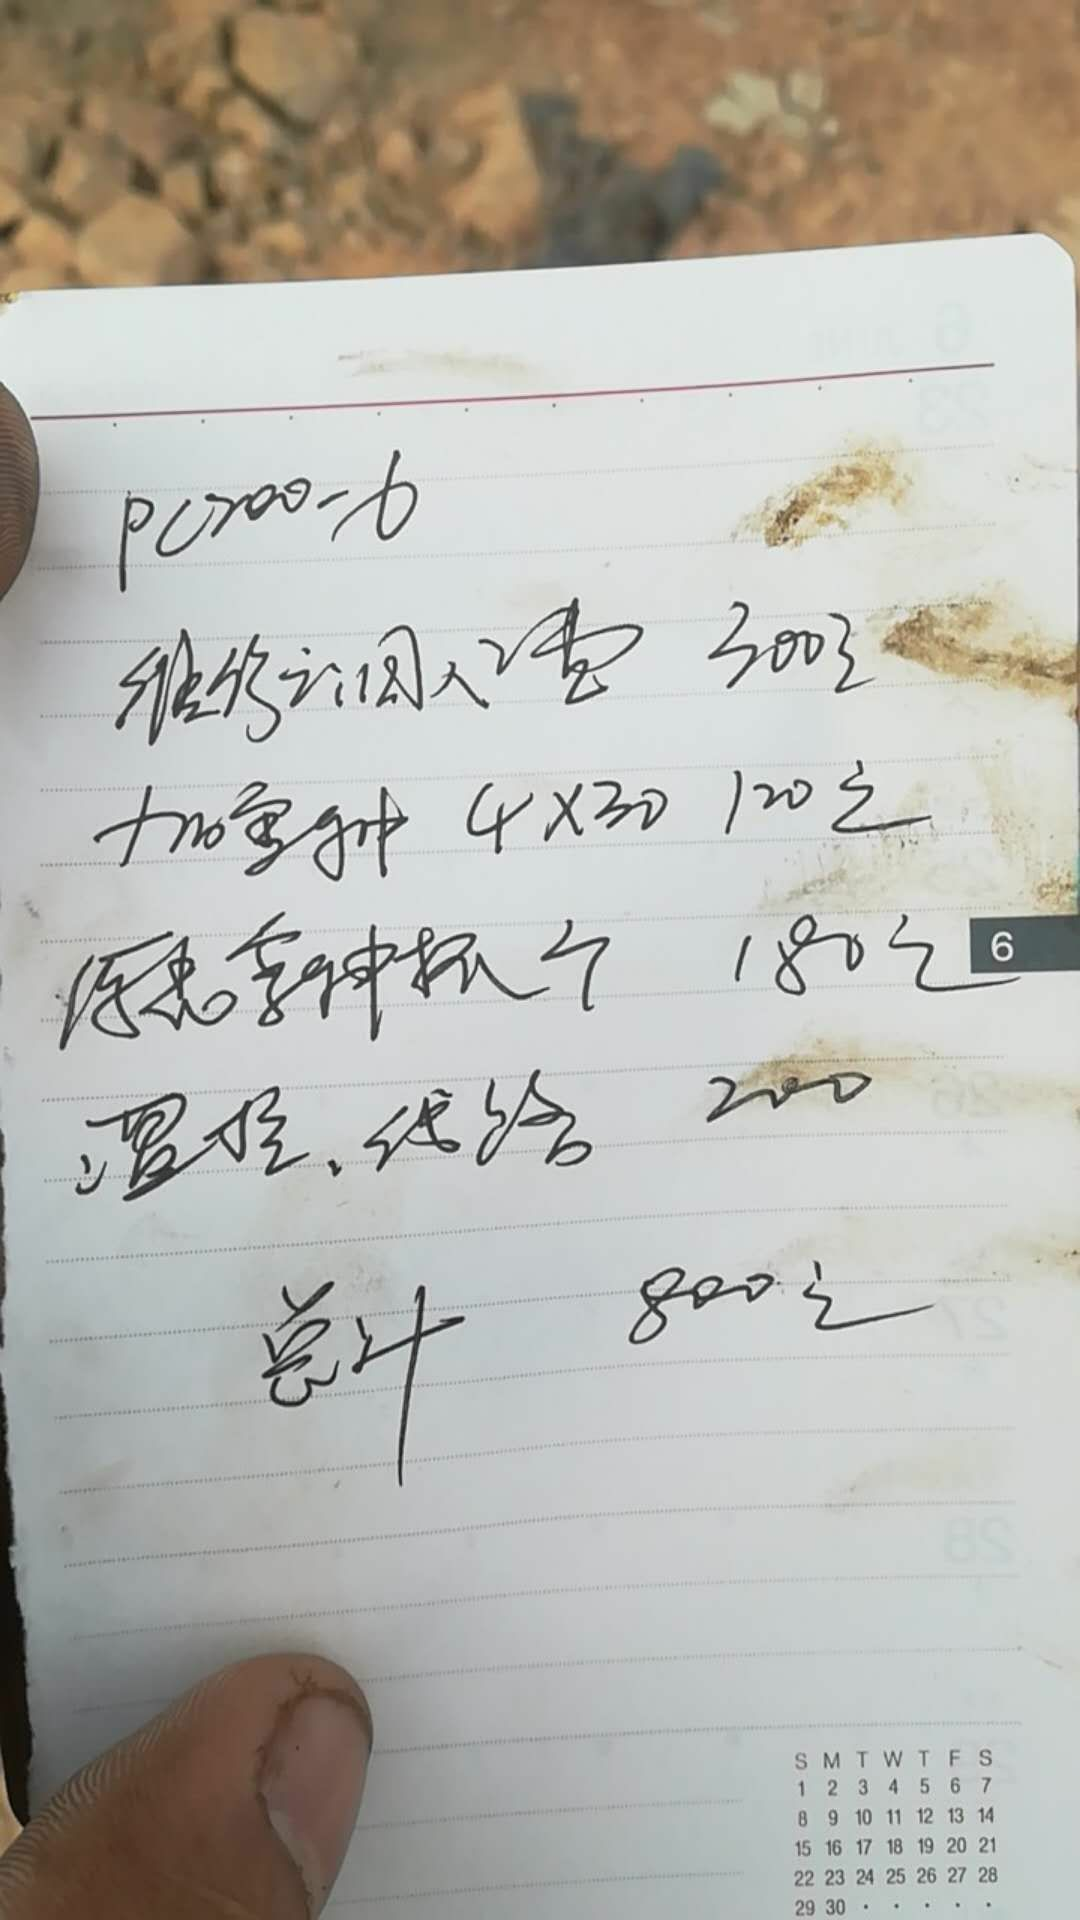 PC200-6
维修空调人工费 300元
加雪种 4X30 120元
雪种瓶 个 180元
温控、线 200
总计 800元
6
S M T W T F S
1 2 3 4 5 6 7
8 9 10 11 12 13 14
15 16 17 18 19 20 21
22 23 24 25 26 27 28
29 30 · · · · ·